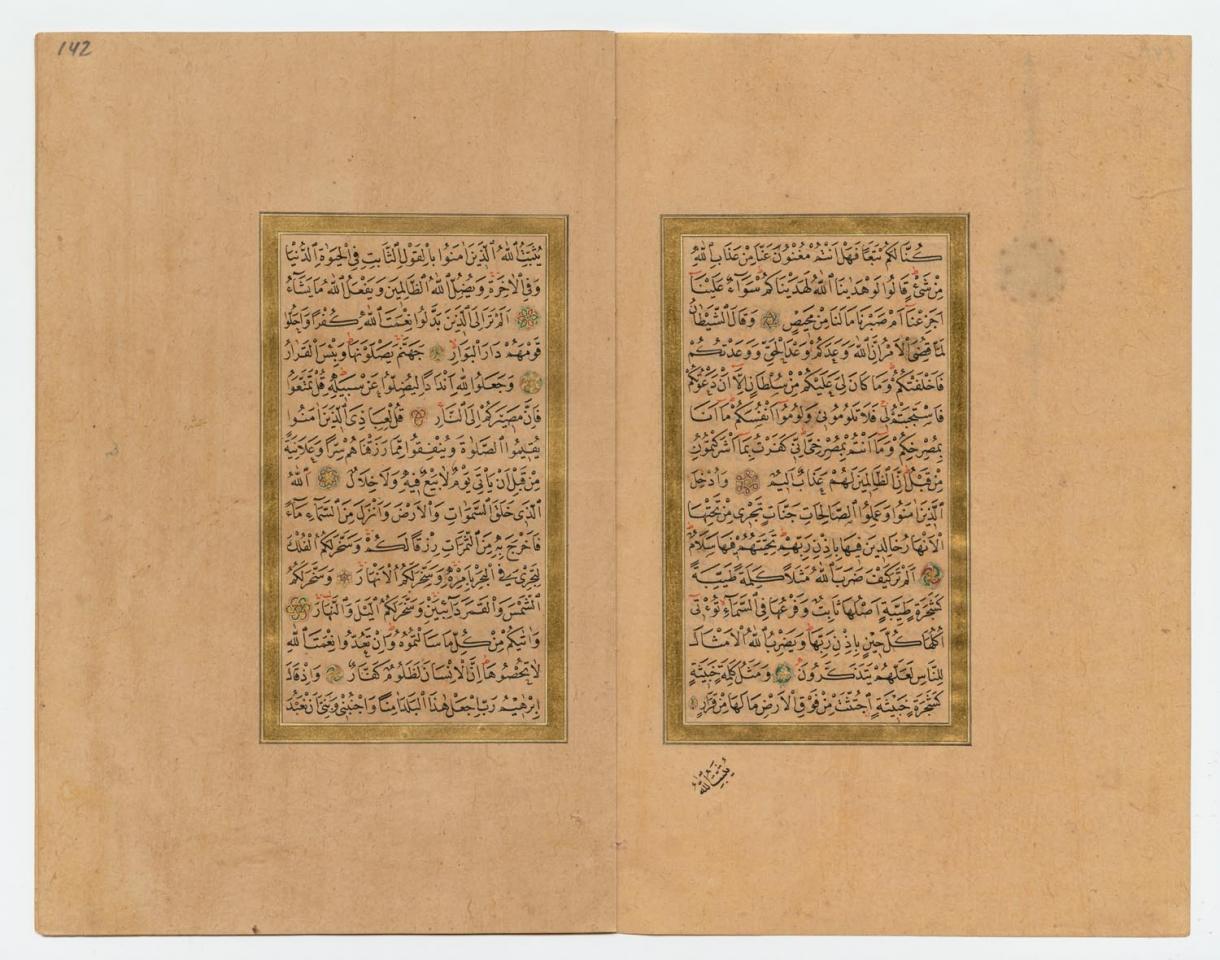 كُنَّا لَكُمْ تَبَعًا فَهَلْ اَنْتُمْ مُغْنُونَ عَنَّا مِنْ عَذَابِ اللّٰهِ
مِنْ شَيْءٍ قَالُوا لَوْ هَدٰينَا اللّٰهُ لَهَدَيْنَاكُمْ سَوَٓاءٌ عَلَيْنَٓا
اَجَزِعْنَٓا اَمْ صَبَرْنَا مَا لَنَا مِنْ مَحِيصٍ وَقَالَ الشَّيْطَانُ
لَمَّا قُضِيَ الْاَمْرُ اِنَّ اللّٰهَ وَعَدَكُمْ وَعْدَ الْحَقِّ وَوَعَدْتُكُمْ
فَاَخْلَفْتُكُمْ وَمَا كَانَ لِيَ عَلَيْكُمْ مِنْ سُلْطَانٍ اِلَّٓا اَنْ دَعَوْتُكُمْ
فَاسْتَجَبْتُمْ لِي فَلَا تَلُومُونِي وَلُومُٓوا اَنْفُسَكُمْ مَٓا اَنَا
بِمُصْرِخِكُمْ وَمَٓا اَنْتُمْ بِمُصْرِخِيَّ اِنِّي كَفَرْتُ بِمَٓا اَشْرَكْتُمُونِ
مِنْ قَبْلُ اِنَّ الظَّالِمِينَ لَهُمْ عَذَابٌ اَلِيمٌ وَاُدْخِلَ
الَّذِينَ اٰمَنُوا وَعَمِلُوا الصَّالِحَاتِ جَنَّاتٍ تَجْرِي مِنْ تَحْتِهَا
الْاَنْهَارُ خَالِدِينَ فِيهَا بِاِذْنِ رَبِّهِمْ تَحِيَّتُهُمْ فِيهَا سَلَامٌ
اَلَمْ تَرَ كَيْفَ ضَرَبَ اللّٰهُ مَثَلًا كَلِمَةً طَيِّبَةً
كَشَجَرَةٍ طَيِّبَةٍ اَصْلُهَا ثَابِتٌ وَفَرْعُهَا فِي السَّمَٓاءِ تُؤْتِٓي
اُكُلَهَا كُلَّ حِينٍ بِاِذْنِ رَبِّهَا وَيَضْرِبُ اللّٰهُ الْاَمْثَالَ
لِلنَّاسِ لَعَلَّهُمْ يَتَذَكَّرُونَ وَمَثَلُ كَلِمَةٍ خَبِيثَةٍ
كَشَجَرَةٍ خَبِيثَةٍ اجْتُثَّتْ مِنْ فَوْقِ الْاَرْضِ مَا لَهَا مِنْ قَرَارٍ
يُثَبِّتُ اللّٰهُ
142
يُثَبِّتُ اللّٰهُ الَّذِينَ اٰمَنُوا بِالْقَوْلِ الثَّابِتِ فِي الْحَيٰوةِ الدُّنْيَا
وَفِي الْاٰخِرَةِ وَيُضِلُّ اللّٰهُ الظَّالِمِينَ وَيَفْعَلُ اللّٰهُ مَا يَشَٓاءُ
اَلَمْ تَرَ اِلَى الَّذِينَ بَدَّلُوا نِعْمَتَ اللّٰهِ كُفْرًا وَاَحَلُّوا
قَوْمَهُمْ دَارَ الْبَوَارِ جَهَنَّمَ يَصْلَوْنَهَا وَبِئْسَ الْقَرَارُ
وَجَعَلُوا لِلّٰهِ اَنْدَادًا لِيُضِلُّوا عَنْ سَبِيلِهِ قُلْ تَمَتَّعُوا
فَاِنَّ مَصِيرَكُمْ اِلَى النَّارِ قُلْ لِعِبَادِيَ الَّذِينَ اٰمَنُوا
يُقِيمُوا الصَّلٰوةَ وَيُنْفِقُوا مِمَّا رَزَقْنَاهُمْ سِرًّا وَعَلَانِيَةً
مِنْ قَبْلِ اَنْ يَأْتِيَ يَوْمٌ لَا بَيْعٌ فِيهِ وَلَا خِلَالٌ اَللّٰهُ
الَّذِي خَلَقَ السَّمٰوَاتِ وَالْاَرْضَ وَاَنْزَلَ مِنَ السَّمَٓاءِ مَٓاءً
فَاَخْرَجَ بِهِ مِنَ الثَّمَرَاتِ رِزْقًا لَكُمْ وَسَخَّرَ لَكُمُ الْفُلْكَ
لِتَجْرِيَ فِي الْبَحْرِ بِاَمْرِهِ وَسَخَّرَ لَكُمُ الْاَنْهَارَ وَسَخَّرَ لَكُمُ
الشَّمْسَ وَالْقَمَرَ دَٓائِبَيْنِ وَسَخَّرَ لَكُمُ الَّيْلَ وَالنَّهَارَ
وَاٰتٰيكُمْ مِنْ كُلِّ مَا سَاَلْتُمُوهُ وَاِنْ تَعُدُّوا نِعْمَتَ اللّٰهِ
لَا تُحْصُوهَا اِنَّ الْاِنْسَانَ لَظَلُومٌ كَفَّارٌ وَاِذْ قَالَ
اِبْرٰهِيمُ رَبِّ اجْعَلْ هٰذَا الْبَلَدَ اٰمِنًا وَاجْنُبْنِي وَبَنِيَّ اَنْ نَعْبُدَ